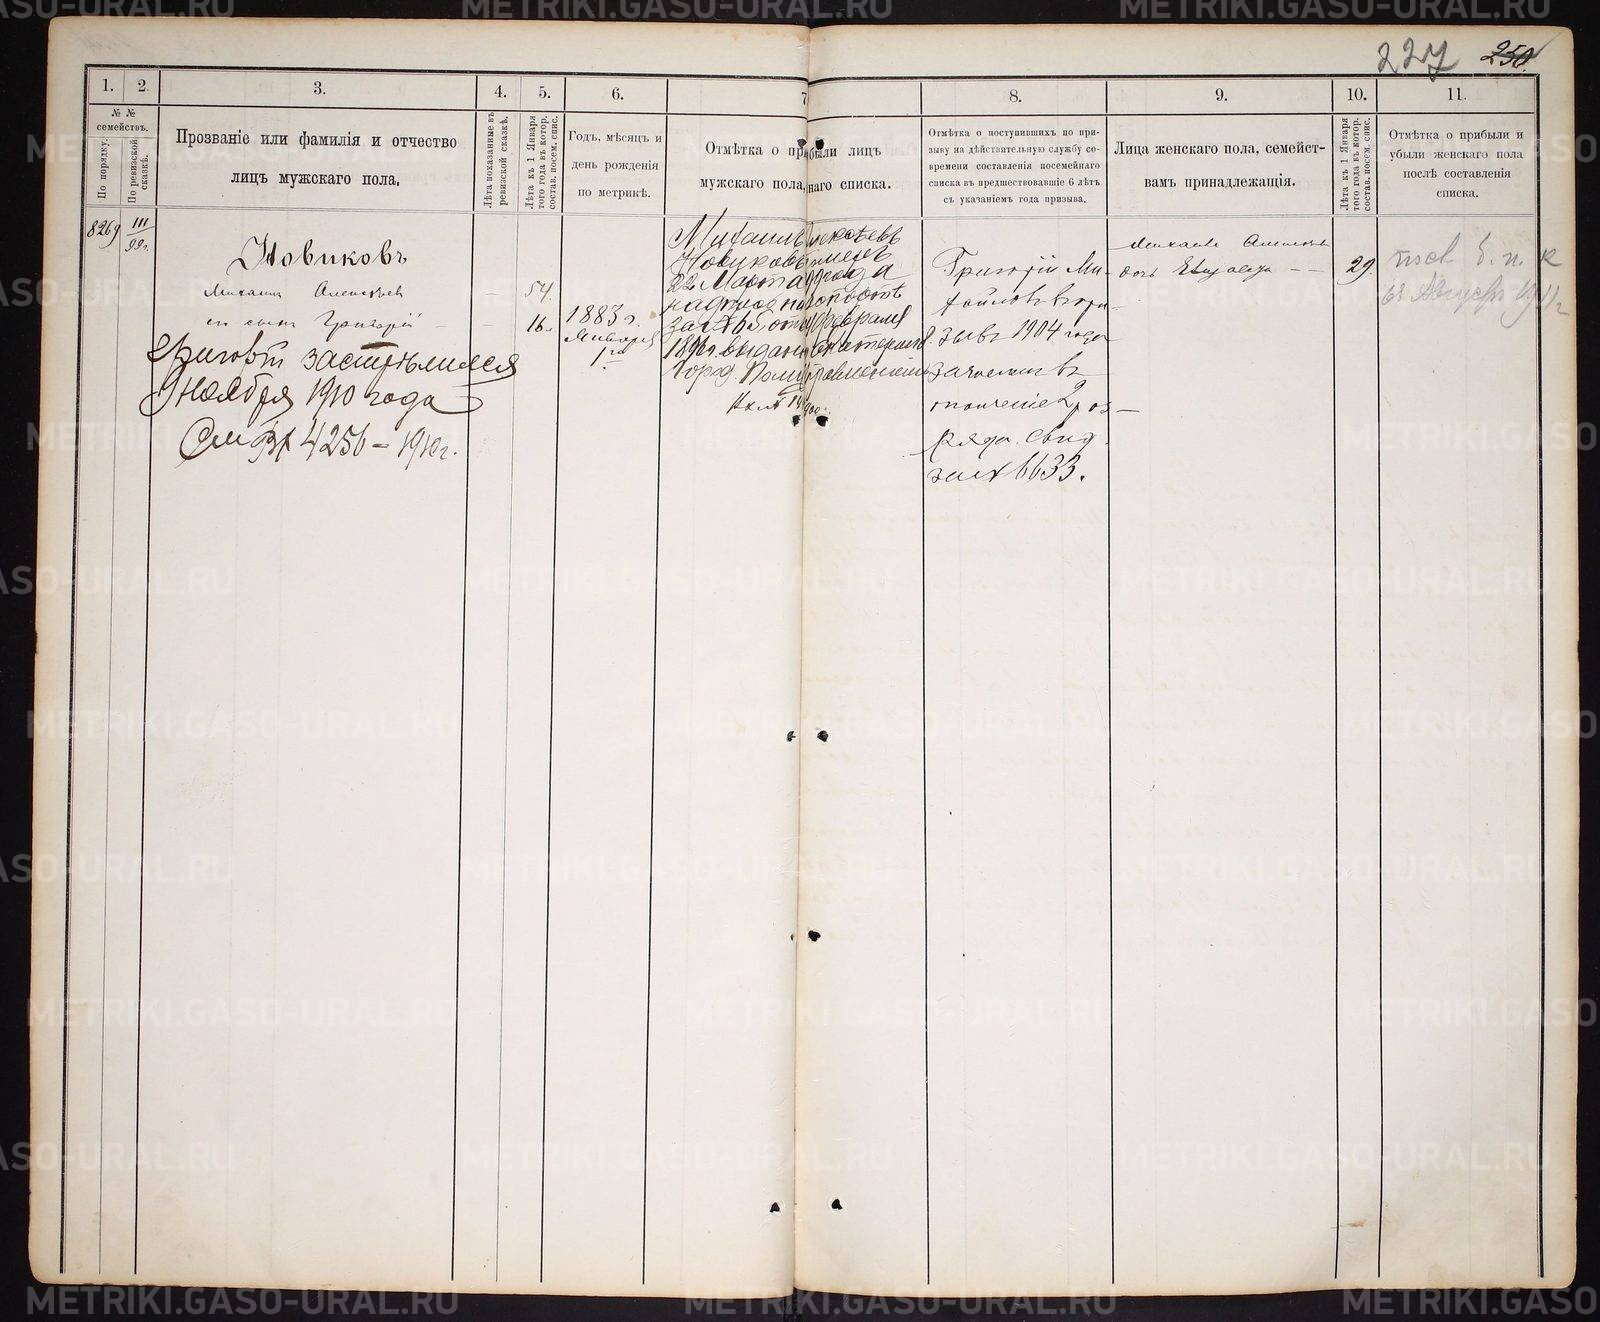 227 250.
1. 2. 3. 4. 5. 6. 7 8. 9. 10. 11.
№ №
семействъ.
По порядку.
По ревизской сказкѣ.
Прозваніе или фамилія и отчество
лицъ мужскаго пола,
Лѣта показанные въ
ревизской сказкѣ.
Лѣта къ 1 Января
того года въ котор.
состав. посем. спис.
Годъ, мѣсяцъ и
день рожденія
по метрикѣ.
Отмѣтка о прибыли лицъ
мужскаго пола, наго списка.
Отмѣтка о поступившихъ по при-
зыву на дѣйствительную службу со-
времени составленія посемейнаго
списка въ предшествовавшіе 6 лѣтъ
съ указаніемъ года призыва.
Лица женскаго пола, семейст-
вамъ принадлежащія.
Лѣта къ 1 Января
того года въ котор.
состав. посем. спис.
Отмѣтка о прибыли и
убыли женскаго пола
послѣ составленія
списка.
8269
III
99г.
Новиковъ
Михаилъ Алексѣевъ
его сынъ Григорій
Григорій застрѣлился
9 ноября 1910 года
См Вх 4256 – 1910г.
54.
16.
1883 г.
Января
1го
Михаилъ Алексѣевъ
Новиковъ
22 Марта года
надпись на
за № 65, отъ февраля
выдан. Екатеринб.
Город. Полиц. Управленіемъ
Григорій Ми-
хайловъ въ при-
зывъ 1904 года
зачисленъ въ
ополченіе 2 раз-
ряда. Свид.
за № 6633.
Михаила Алексѣева
дочь
29
6 Августа 1911 г